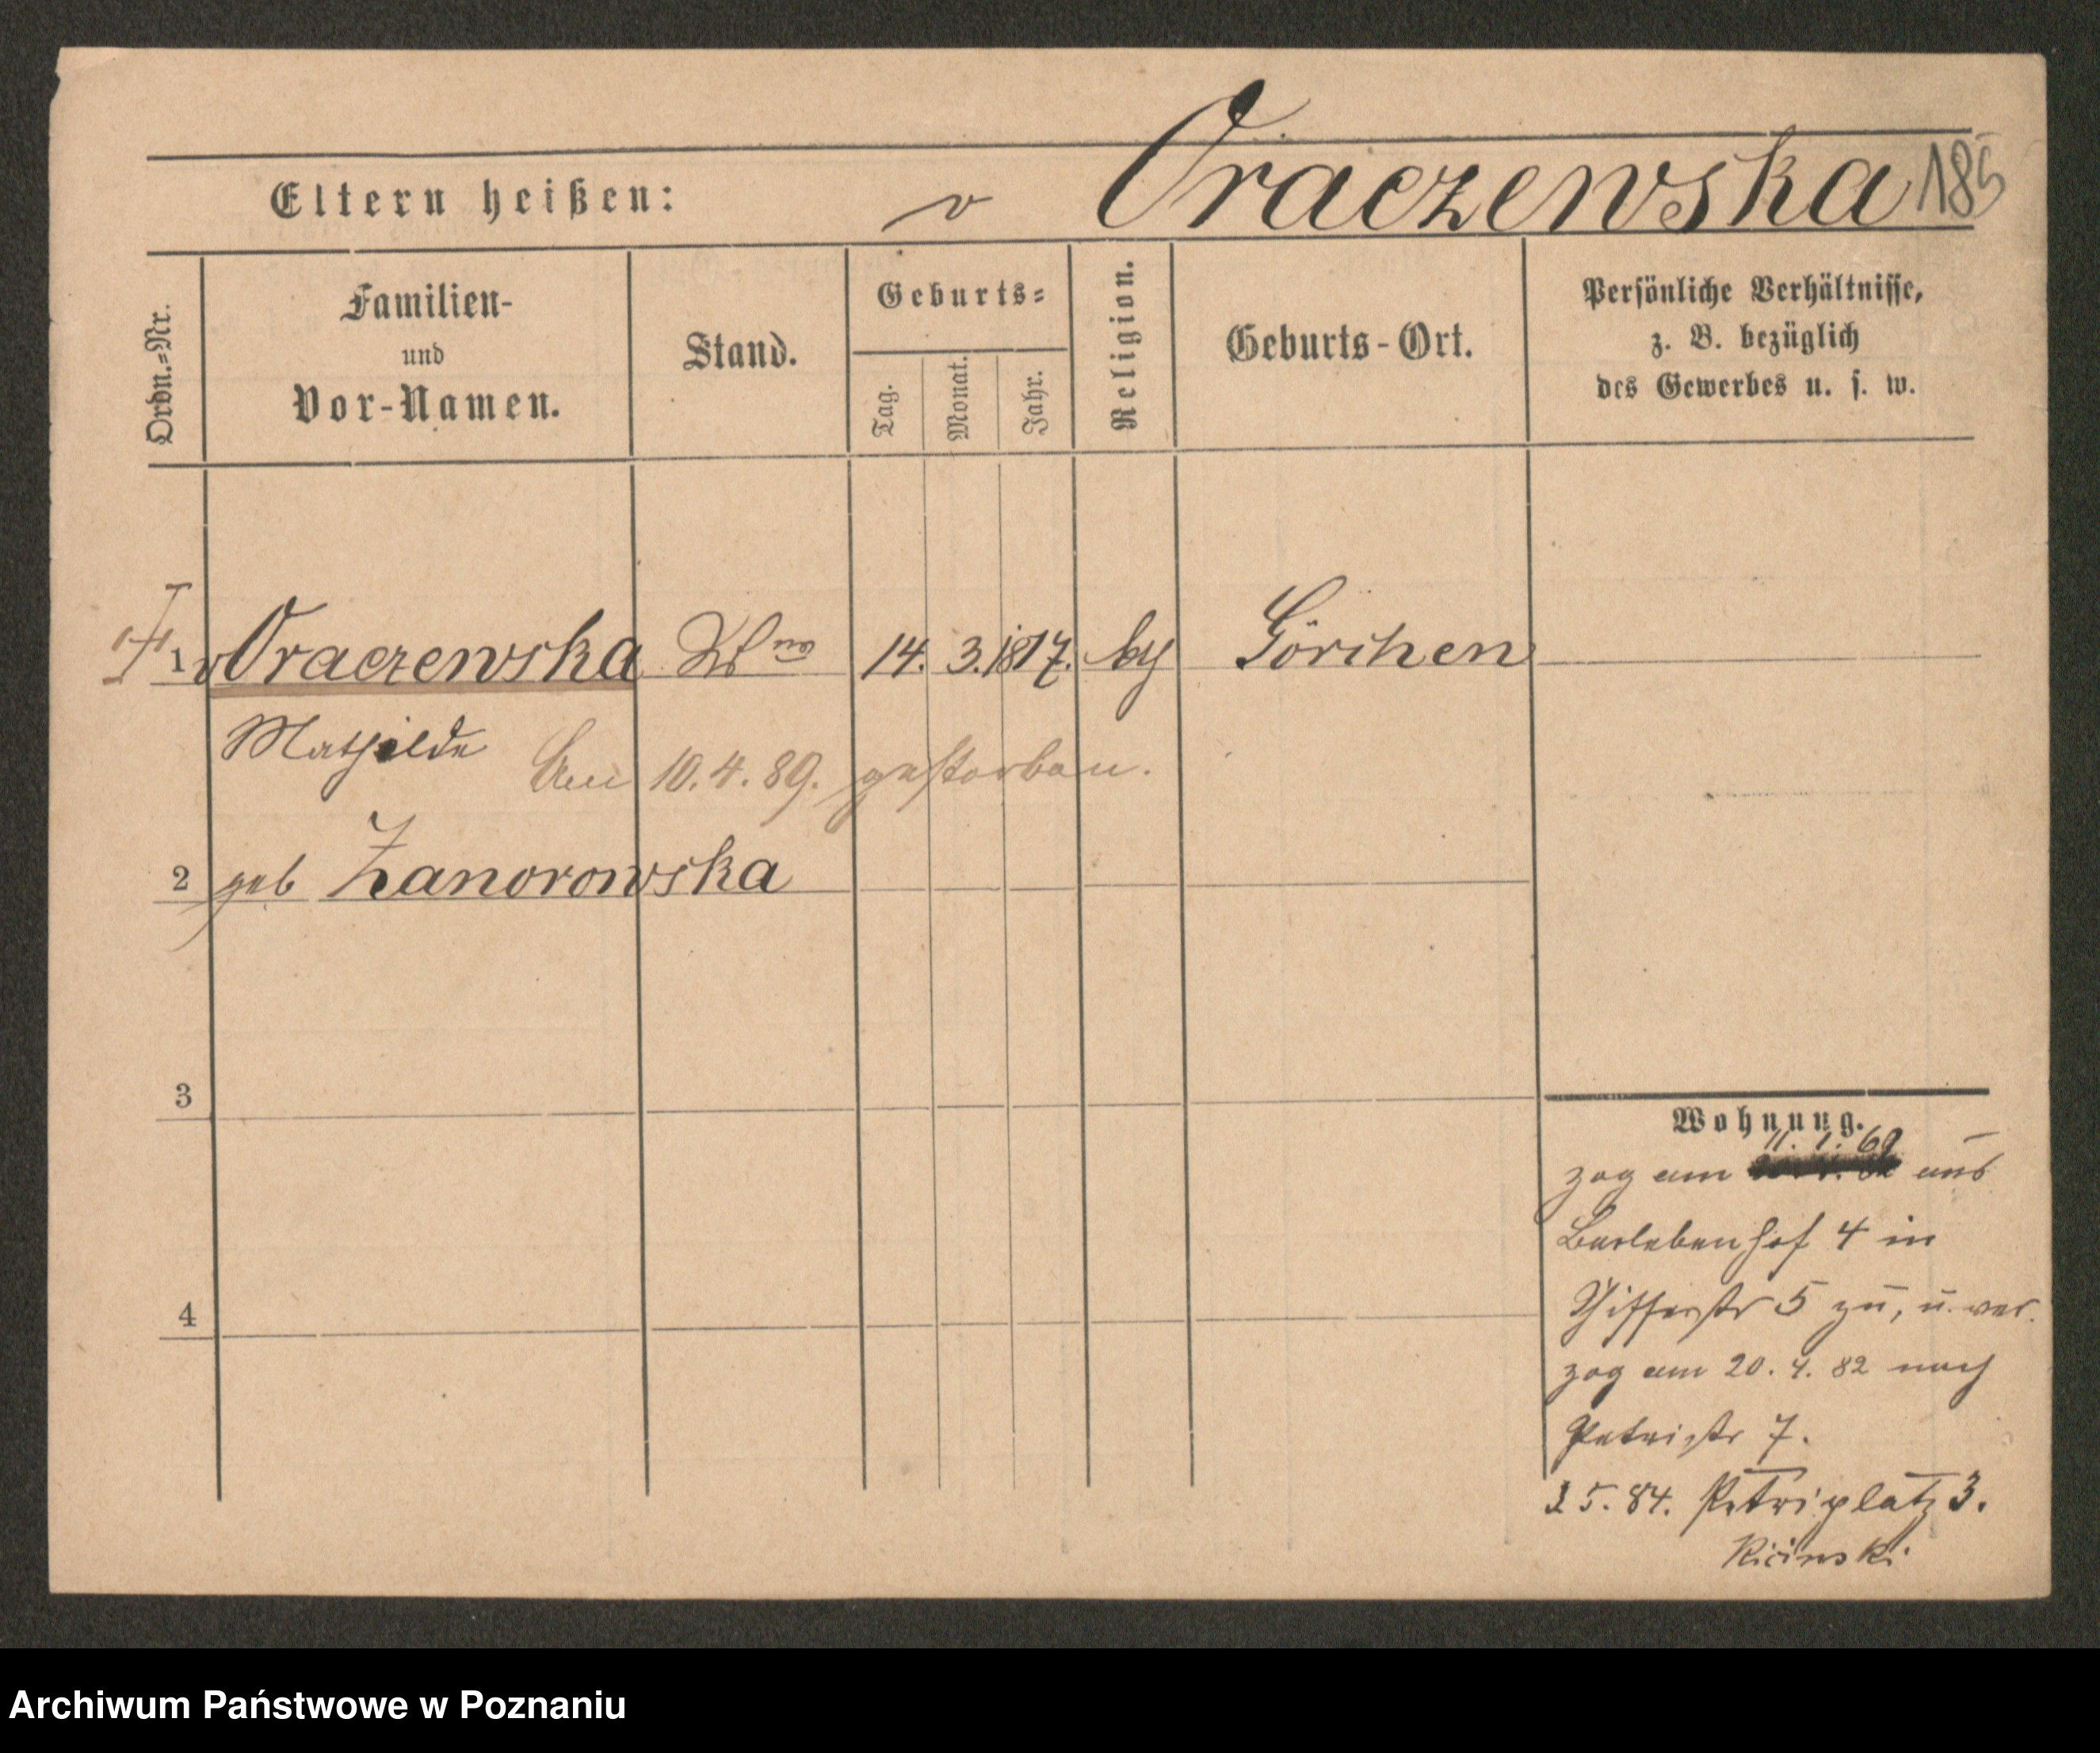 Eltern heißen: v Oraczewska 185
Ordn.=Nr.
Familien-
und
Vor-Namen.
Stand.
Geburts=
Tag.
Monat.
Jahr.
Religion.
Geburts-Ort.
Persönliche Verhältnisse,
z. B. bezüglich
des Gewerbes u. s. w.
1 v Oraczewska Ww 14. 3. 1817. k. Görchen
Mathilde Am 10. 4. 89. gestorben.
2 geb Zanorowska
3
4
Wohnung.
11. 1. 69
zog am aus
Barlebenhof 4 in
5 zu, u. ver.
zog am 20. 4. 82 nach
Petristr 7.
5. 84. Petriplatz 3.
Ricinski.
Archiwum Państwowe w Poznaniu